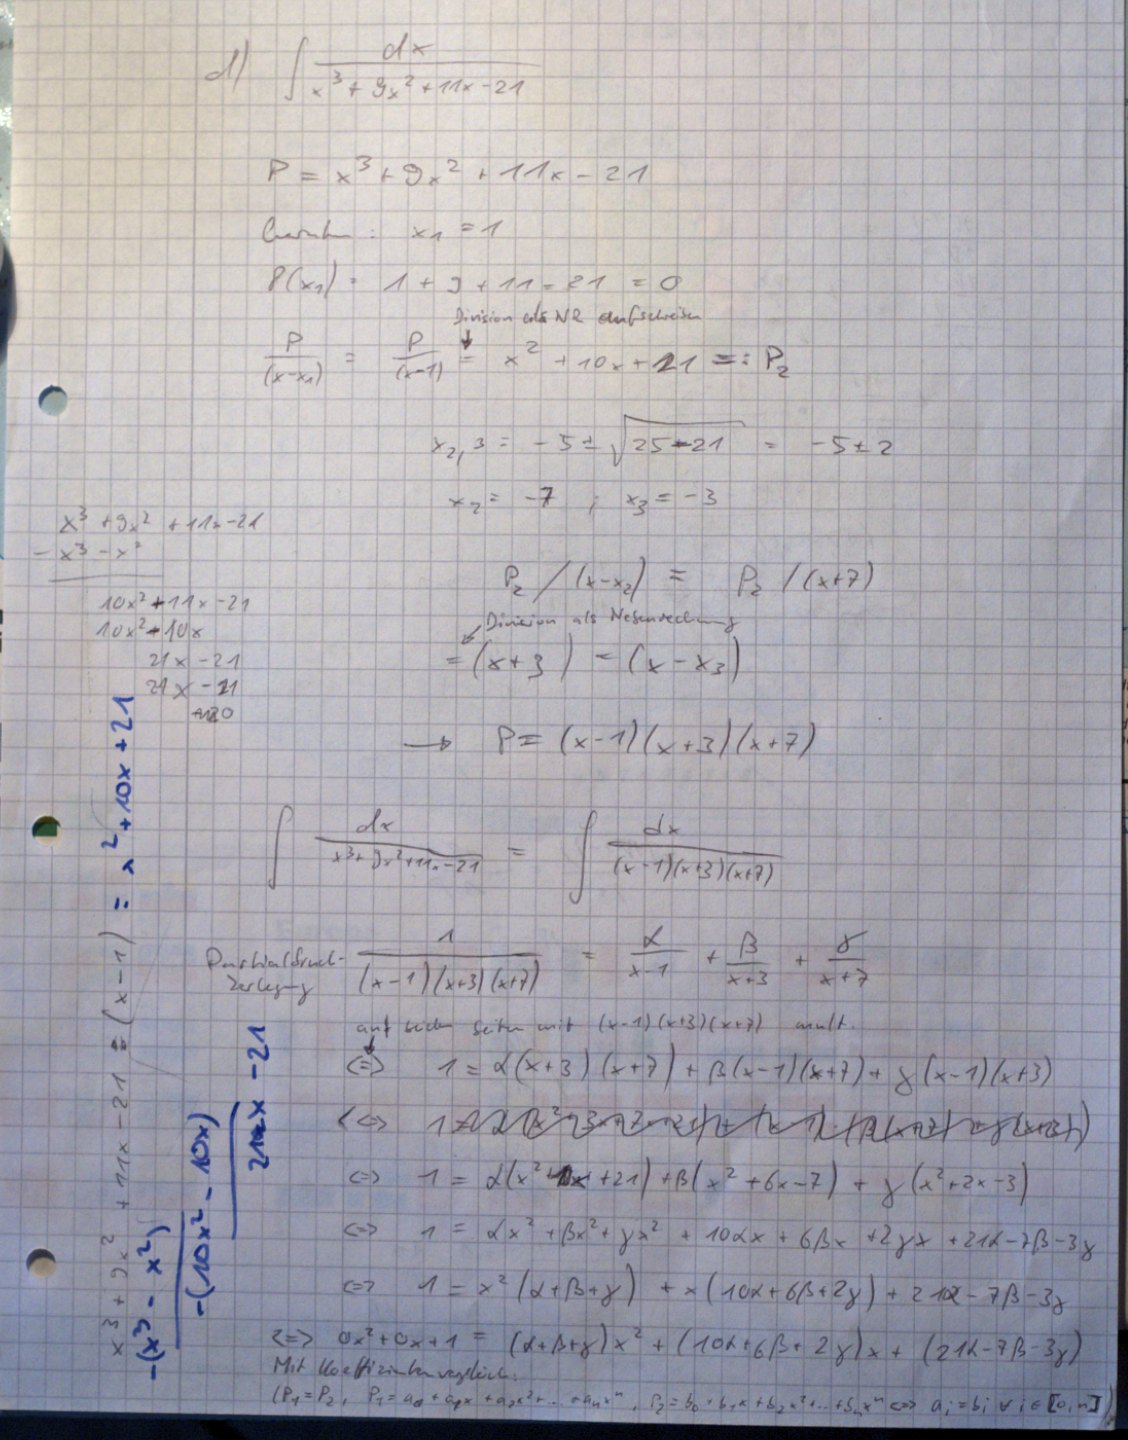 d) ∫ dx / (x³ + 9x² + 11x - 21)
P = x³ + 9x² + 11x - 21
x₁ = 1
P(x₁) = 1 + 9 + 11 - 21 = 0
Division als NR aufschreiben
P/(x-x₁) = P/(x-1) = x² + 10x + 21 =: P₂
x₂,₃ = -5 ± √(25-21) = -5 ± 2
x₂ = -7 ; x₃ = -3
x³ + 9x² + 11x - 21
- x³ - x²
10x² + 11x - 21
10x² - 10x
21x - 21
21x - 21
0
P₂ / (x-x₂) = P₂ / (x+7)
Division als Nebenrechnung
= (x+3) = (x - x₃)
→ P = (x-1)(x+3)(x+7)
∫ dx / (x³ + 9x² + 11x - 21) = ∫ dx / ((x-1)(x+3)(x+7))
Partialbruch-
zerlegung
1 / ((x-1)(x+3)(x+7)) = α/(x-1) + β/(x+3) + γ/(x+7)
auf beiden Seiten mit (x-1)(x+3)(x+7) mult.
<=> 1 = α(x+3)(x+7) + β(x-1)(x+7) + γ(x-1)(x+3)
<=> 1 = α(x² + 10x + 21) + β(x² + 6x - 7) + γ(x² + 2x - 3)
<=> 1 = αx² + βx² + γx² + 10αx + 6βx + 2γx + 21α - 7β - 3γ
<=> 1 = x²(α+β+γ) + x(10α + 6β + 2γ) + 21α - 7β - 3γ
<=> 0x² + 0x + 1 = (α+β+γ)x² + (10α + 6β + 2γ)x + (21α - 7β - 3γ)
Mit Koeffizientenvergleich.
(P₁ = P₂, P₁ = a₀ + a₁x + a₂x² + ... + aₙxⁿ, P₂ = b₀ + b₁x + b₂x² + ... + bₙxⁿ <=> aᵢ = bᵢ ∀ i ∈ [0,n])
x³ + 9x² + 11x - 21 : (x-1) = x² + 10x + 21
-(x³ - x²)
-(10x² - 10x)
21x - 21